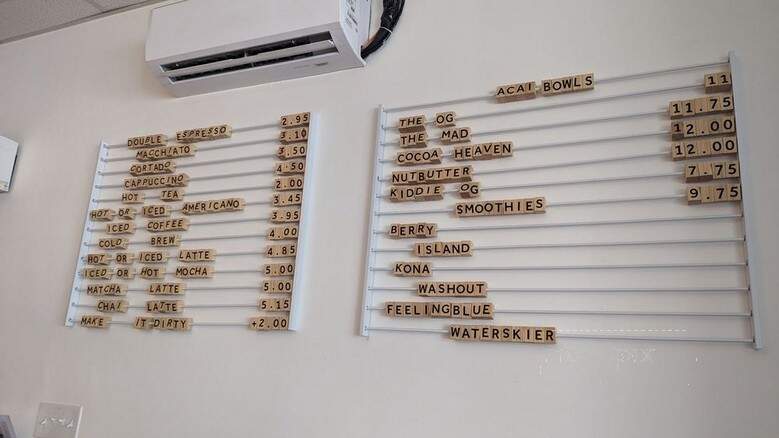 DOUBLE ESPRESSO 2.95
MACCHIATO 3.10
CORTADO 3.50
CAPPUCCINO 4.50
HOT TEA 2.00
HOT OR ICED AMERICANO 3.45
ICED COFFEE 3.95
COLD BREW 4.00
HOT OR ICED LATTE 4.85
ICED OR HOT MOCHA 5.00
MATCHA LATTE 5.00
CHAI LATTE 5.15
MAKE IT DIRTY +2.00
ACAI BOWLS
THE OG 11
THE MAD 11.75
COCOA HEAVEN 12.00
NUTBUTTER 12.00
KIDDIE OG 7.75
SMOOTHIES 9.75
BERRY
ISLAND
KONA
WASHOUT
FEELINGBLUE
WATERSKIER